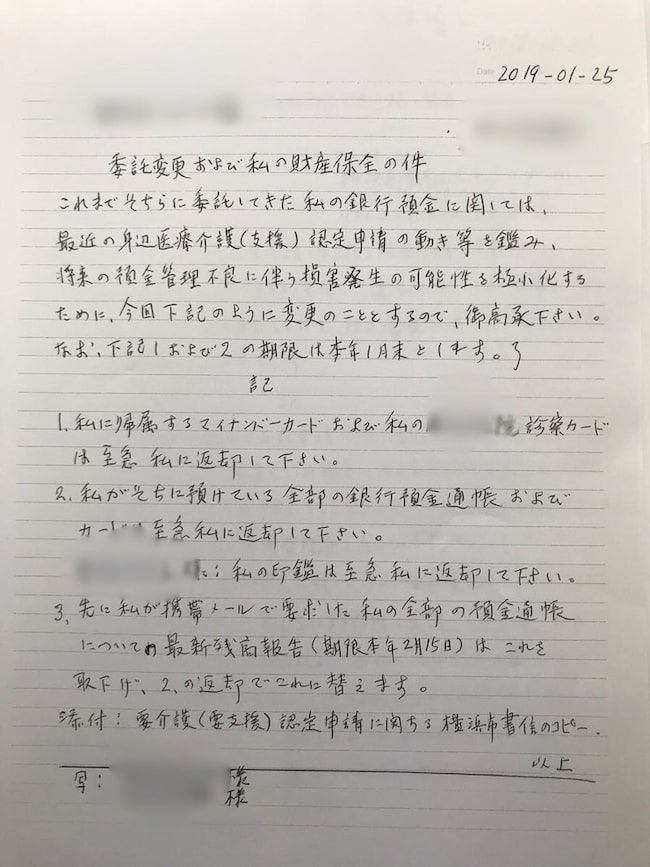 Date 2019-01-25
委託変更および私の財産保全の件
これまでそちらに委託してきた私の銀行預金に関しては、
最近の身辺医療介護(支援)認定申請の動き等を鑑み、
将来の預金管理不良に伴う損害発生の可能性を極小化する
ために、今回下記のように変更のこととするので、御高承下さい。
なお、下記1および2の期限は本年1月末とします。
記
1. 私に帰属するマイナンバーカードおよび私の 院診察カード
は至急私に返却して下さい。
2. 私がそちに預けている全部の銀行預金通帳および
カード 至急私に返却して下さい。
: 私の印鑑は至急私に返却して下さい。
3. 先に私が携帯メールで要求した私の全部の預金通帳
についての最新残高報告(期限本年2月15日)はこれを
取下げ、2.の返却でこれに替えます。
添付: 要介護(要支援)認定申請に関する横浜市書信のコピー.
以上
写: 様
様